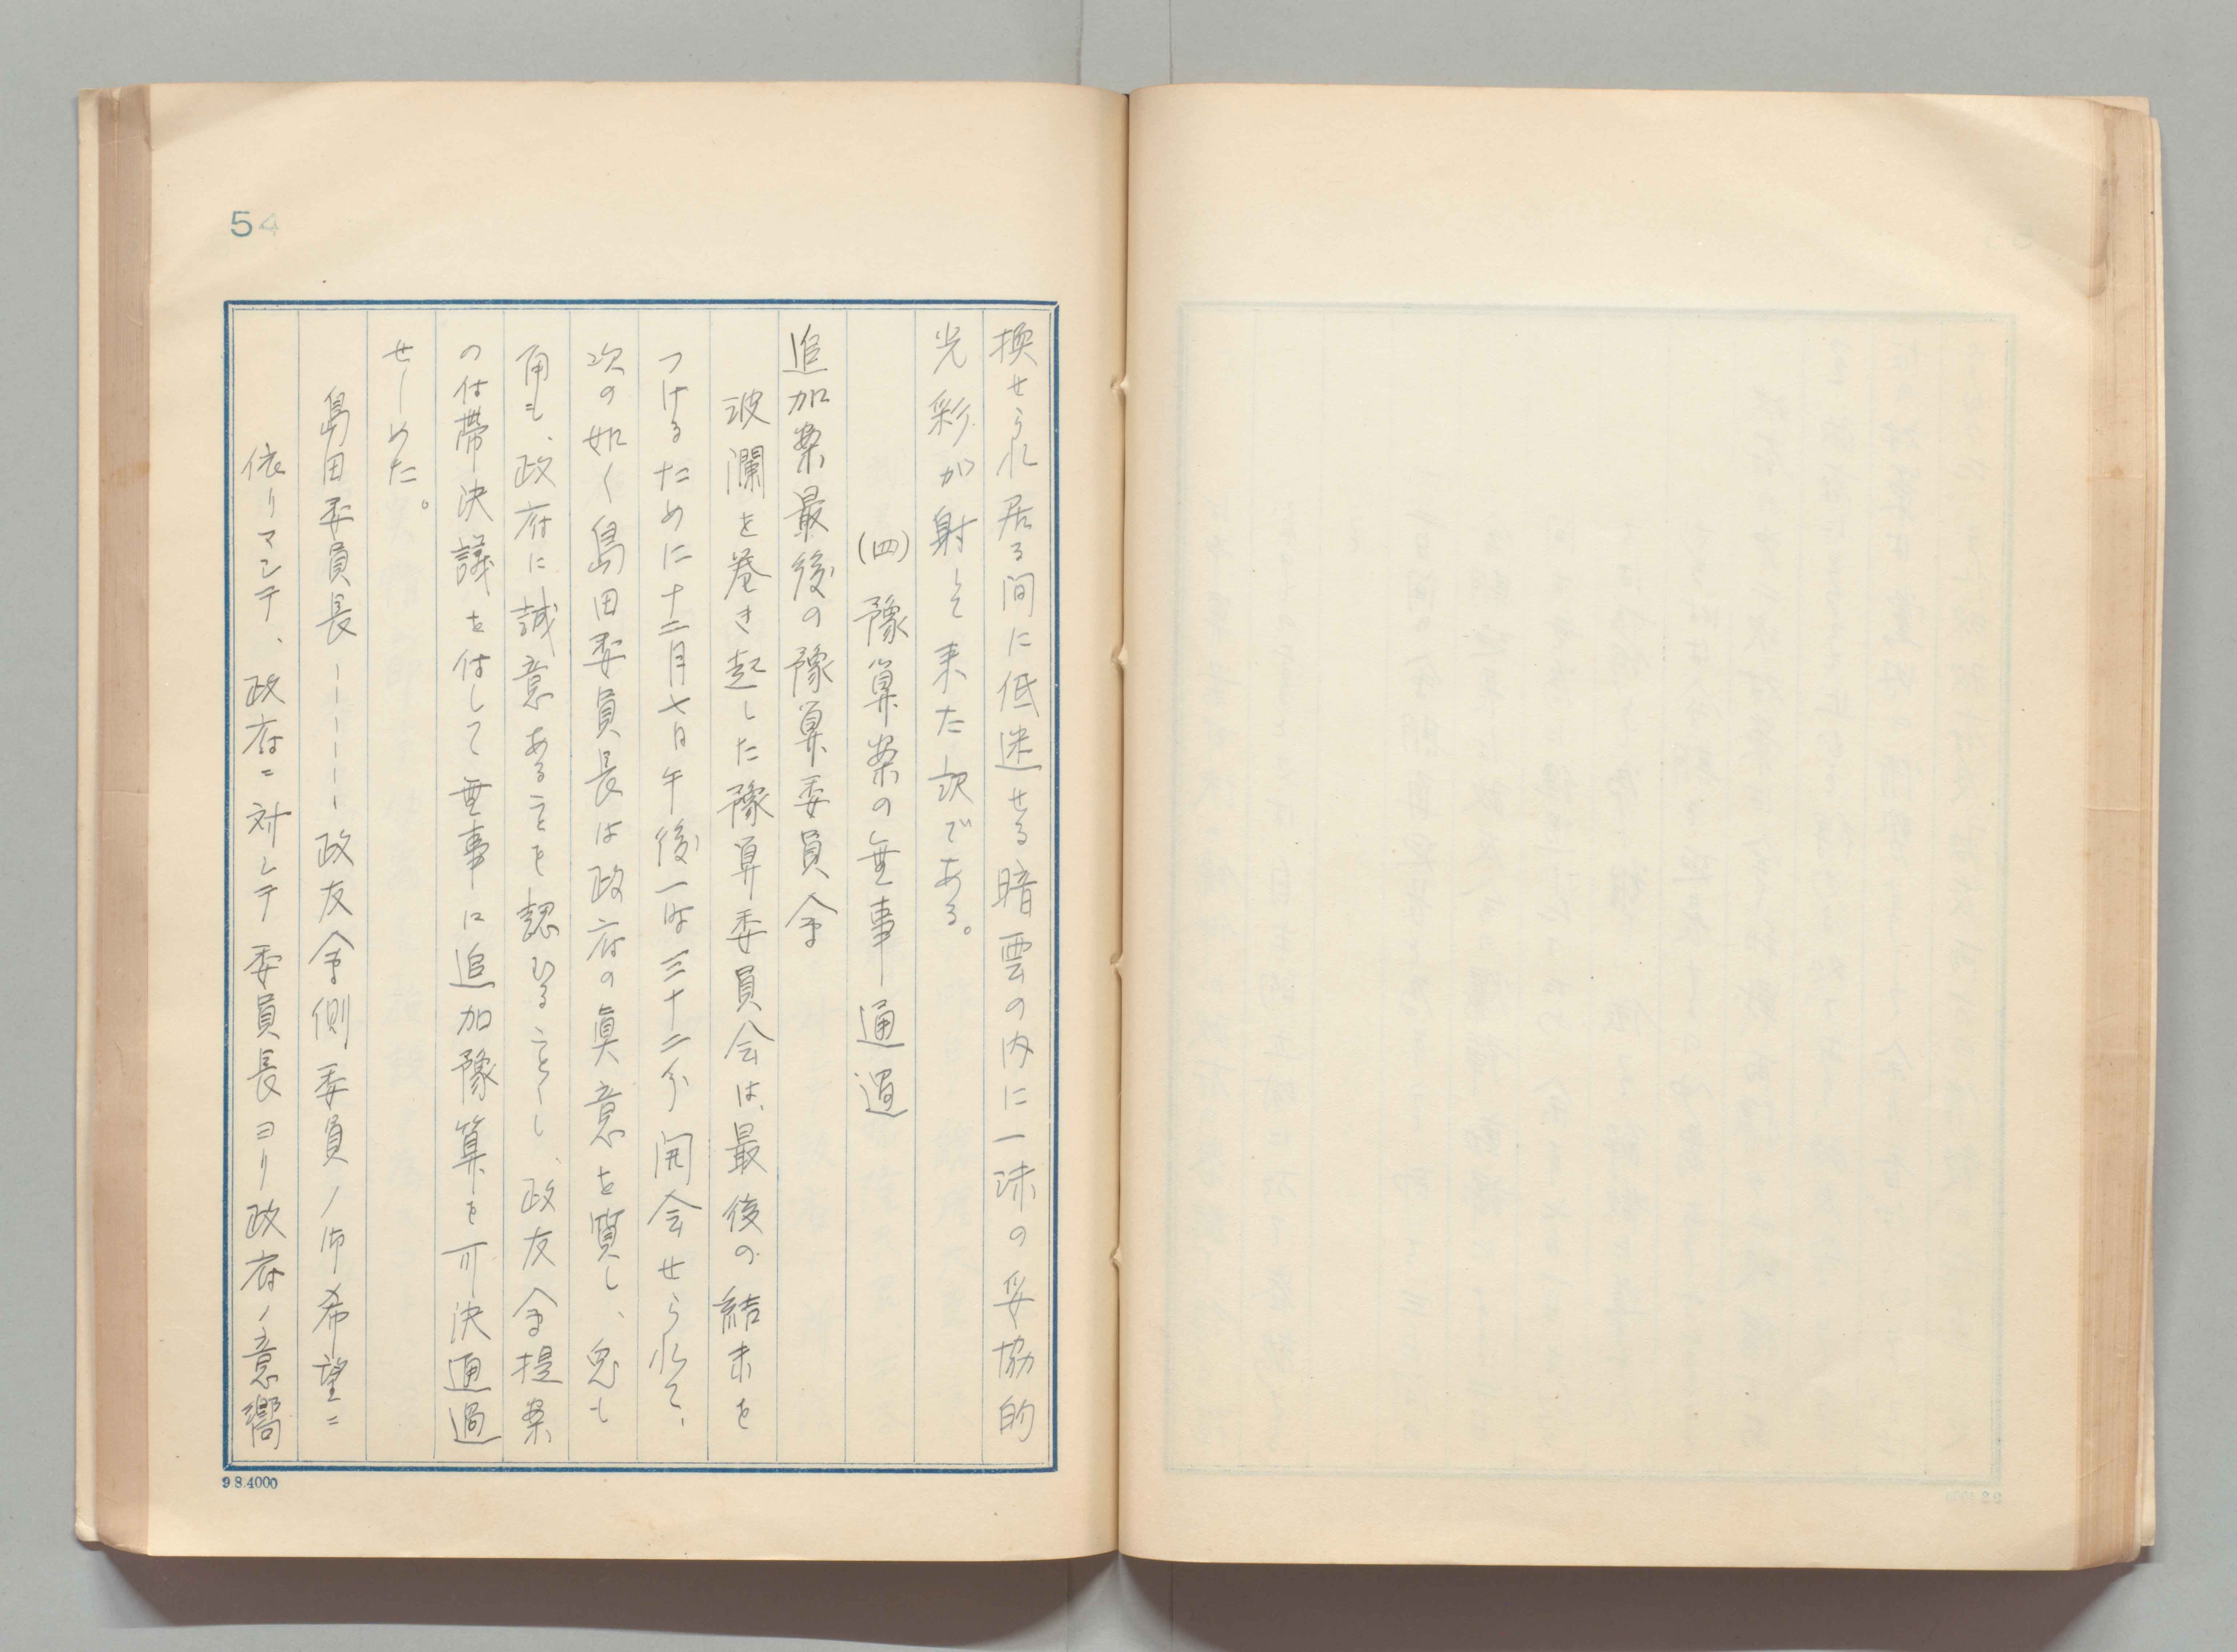 54
換せられ居る間に低迷せる暗雲の内に一沫の妥協的
光彩が射して来た訳である。
(四) 豫算案の無事通過
追加案最後の豫算委員会
波瀾を巻き起した豫算委員会は、最後の結末を
つけるために十二月七日午後一時三十二分開会せられて、
次の如く島田委員長は政府の真意を質し、兎も
角も、政府に誠意あることを認むることゝし、政友会提案
の付帯決議を付して無事に追加豫算を可決通過
せしめた。
島田委員長ーーーーー政友会側委員ノ御希望ニ
依リマシテ、政府ニ対シテ委員長ヨリ政府ノ意嚮
9.8.4000